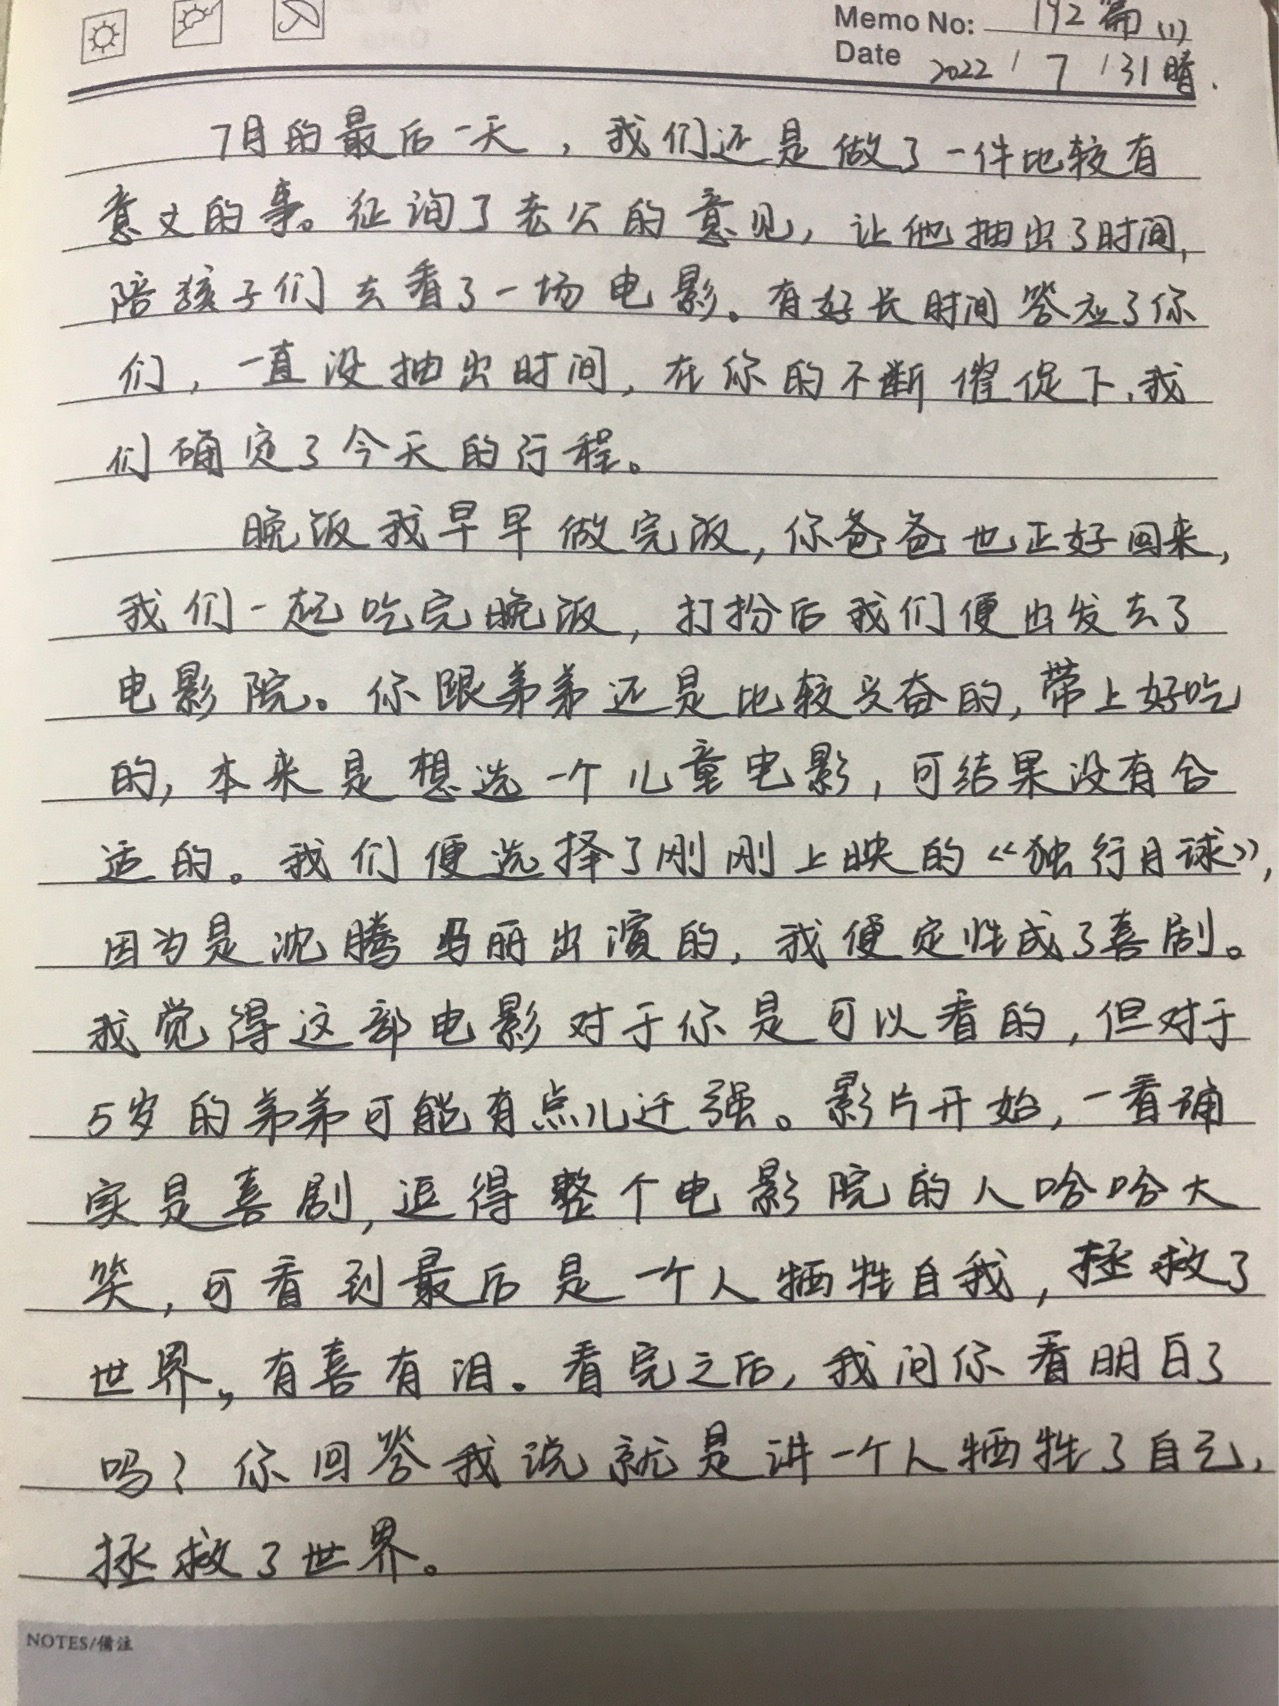 Memo No: 192篇(1)
Date 2022/7/31晴.
7月的最后一天，我们还是做了一件比较有
意义的事。征询了老公的意见，让他抽出了时间，
陪孩子们去看了一场电影。有好长时间答应了你
们，一直没抽出时间，在你的不断催促下，我
们确定了今天的行程。
晚饭我早早做完饭，你爸爸也正好回来，
我们一起吃完晚饭，打扮后我们便出发去了
电影院。你跟弟弟还是比较兴奋的，带上好吃
的，本来是想选一个儿童电影，可结果没有合
适的。我们便选择了刚刚上映的《独行月球》，
因为是沈腾马丽出演的，我便定性成了喜剧。
我觉得这部电影对于你是可以看的，但对于
5岁的弟弟可能有点儿迁强。影片开始，一看确
实是喜剧，逗得整个电影院的人哈哈大
笑，可看到最后是一个人牺牲自我，拯救了
世界。有喜有泪。看完之后，我问你看明白了
吗？你回答我说就是讲一个人牺牲了自己，
拯救了世界。
NOTES/備注